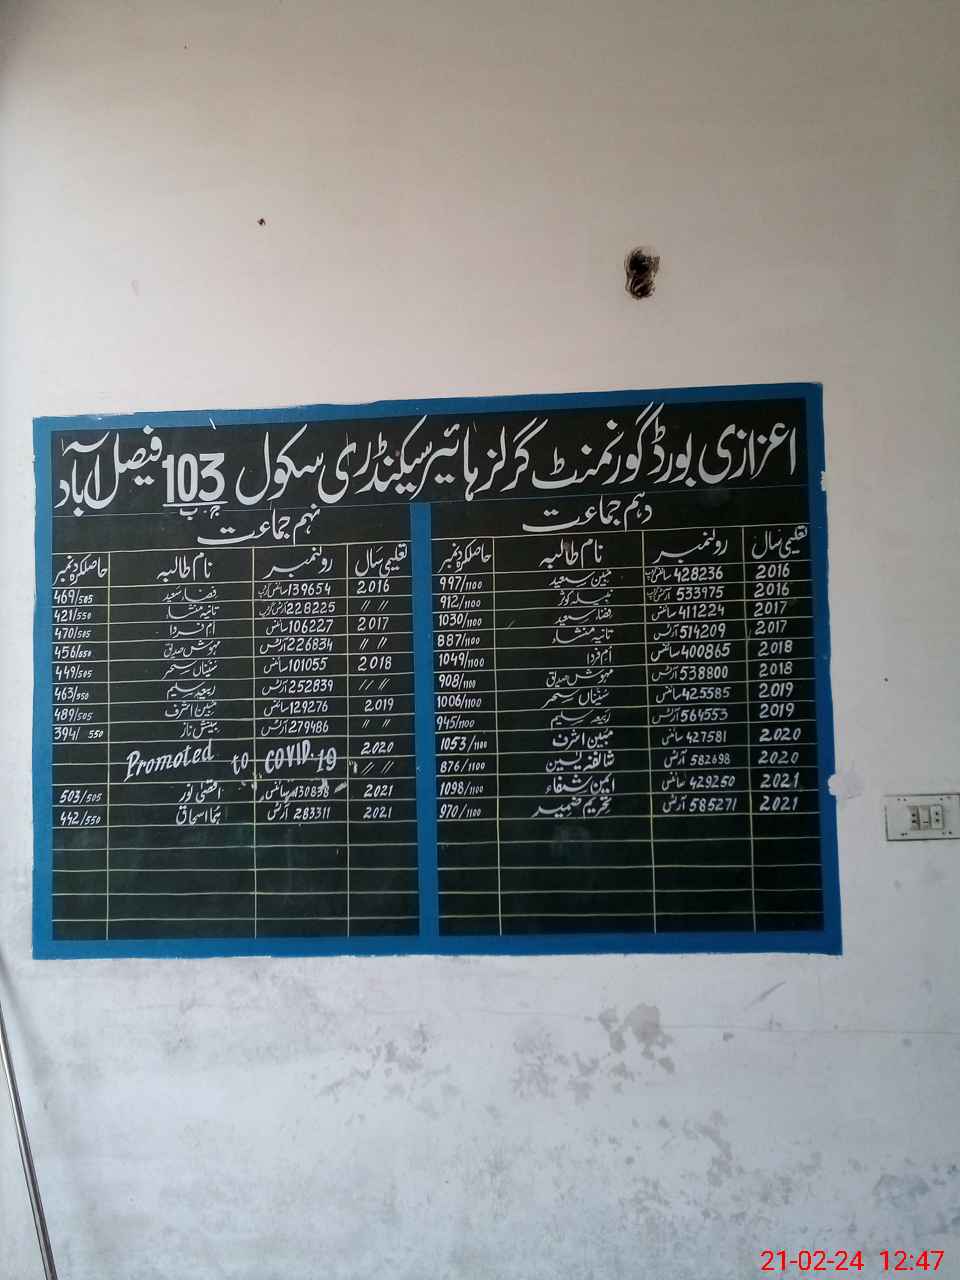 اعزازی بورڈ گورنمنٹ گرلز ہائیر سیکنڈری سکول 103 ج ب فیصل آباد
دہم جماعت
تعلیمی سال رولنمبر نام طالبہ حاصلکردہ نمبر
2016 428236 سائنس گروپ مبین سعید 997/1100
2016 533975 آرٹس گروپ نبیلہ کوثر 912/1100
2017 411224 سائنس فضاء سعید 1030/1100
2017 514209 آرٹس تانیہ منشاء 887/1100
2018 400865 سائنس ام فردا 1049/1100
2018 538800 آرٹس مہوش صدیق 908/1100
2019 425585 سائنس سحر 1006/1100
2019 564553 آرٹس ربیعہ سلیم 945/1100
2020 427581 سائنس مبین اشرف 1053/1100
2020 582698 آرٹس شائفہ یٰسین 876/1100
2021 429250 سائنس ایمن شفاء 1098/1100
2021 585271 آرٹس تحریم ضمیر 970/1100
نہم جماعت
تعلیمی سال رولنمبر نام طالبہ حاصلکردہ نمبر
2016 139654 سائنس گروپ فضاء سعید 469/505
〃 228225 آرٹس گروپ تانیہ منشاء 421/550
2017 106227 سائنس ام فردا 470/505
〃 226834 آرٹس مہوش صدیق 456/550
2018 101055 سائنس سحر 449/505
〃 252839 آرٹس ربیعہ سلیم 463/550
2019 129276 سائنس مبین اشرف 489/505
〃 279486 آرٹس بینش ناز 394/550
2020 Promoted to COVID.19
〃
2021 130838 سائنس اقصیٰ نور 503/505
2021 283311 آرٹس ہما اسحاق 442/550
21-02-24 12:47